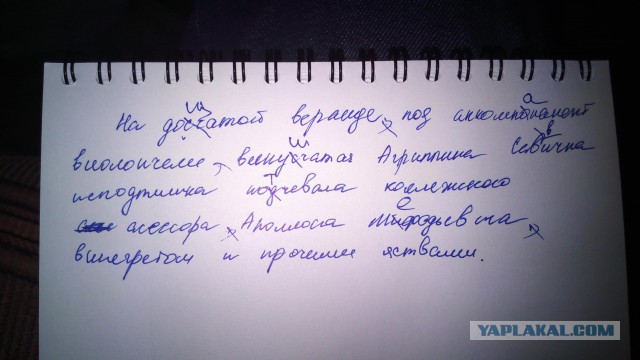 На дощатой веранде, под аккомпанемент
виолончели, веснушчатая Агриппина Саввична
исподтишка потчевала коллежского
асессора, Аполлоса
винегретом и прочими яствами.
YAPLAKAL.COM